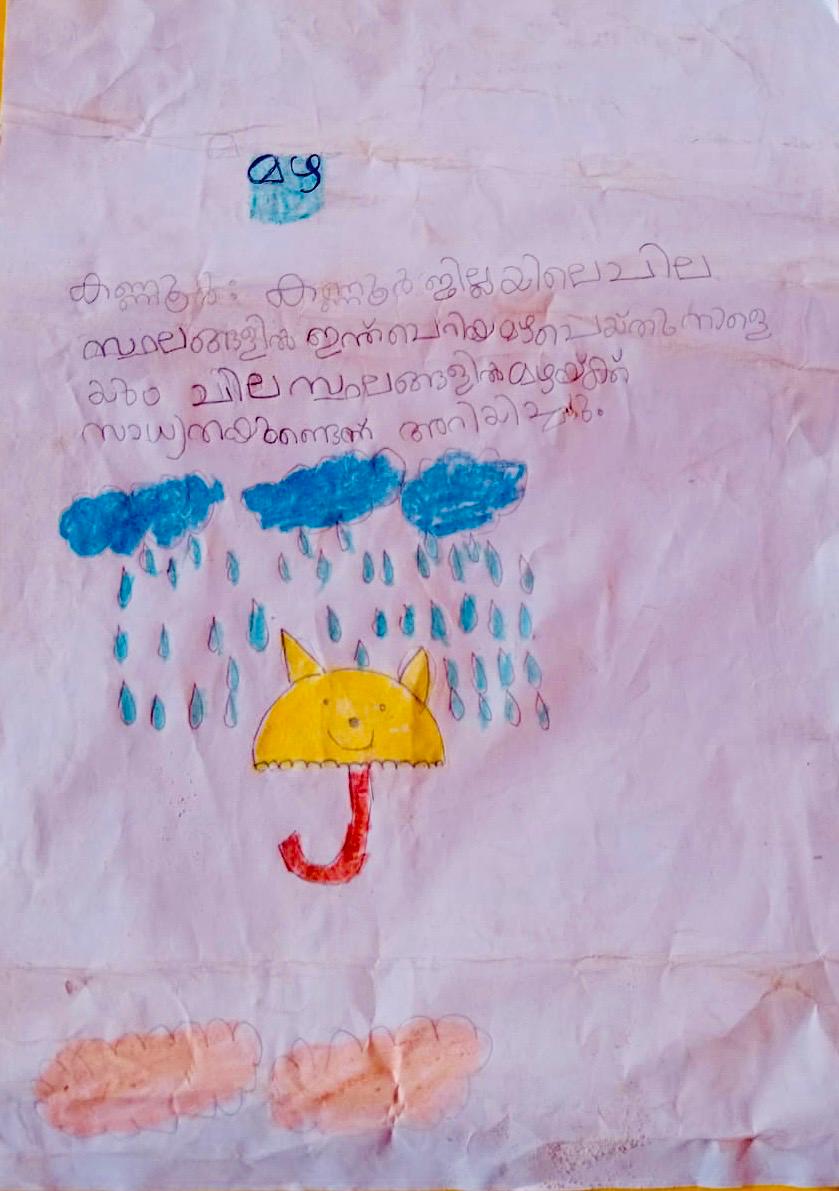 മഴ
കണ്ണൂർ: കണ്ണൂർ ജില്ലയിലെ ചില
സ്ഥലങ്ങളിൽ ഇന്ന് ചെറിയ മഴ പെയ്തു നാളെ
യും ചില സ്ഥലങ്ങളിൽ മഴയ്ക്ക്
സാധ്യതയുണ്ടെന്ന് അറിയിച്ചു.